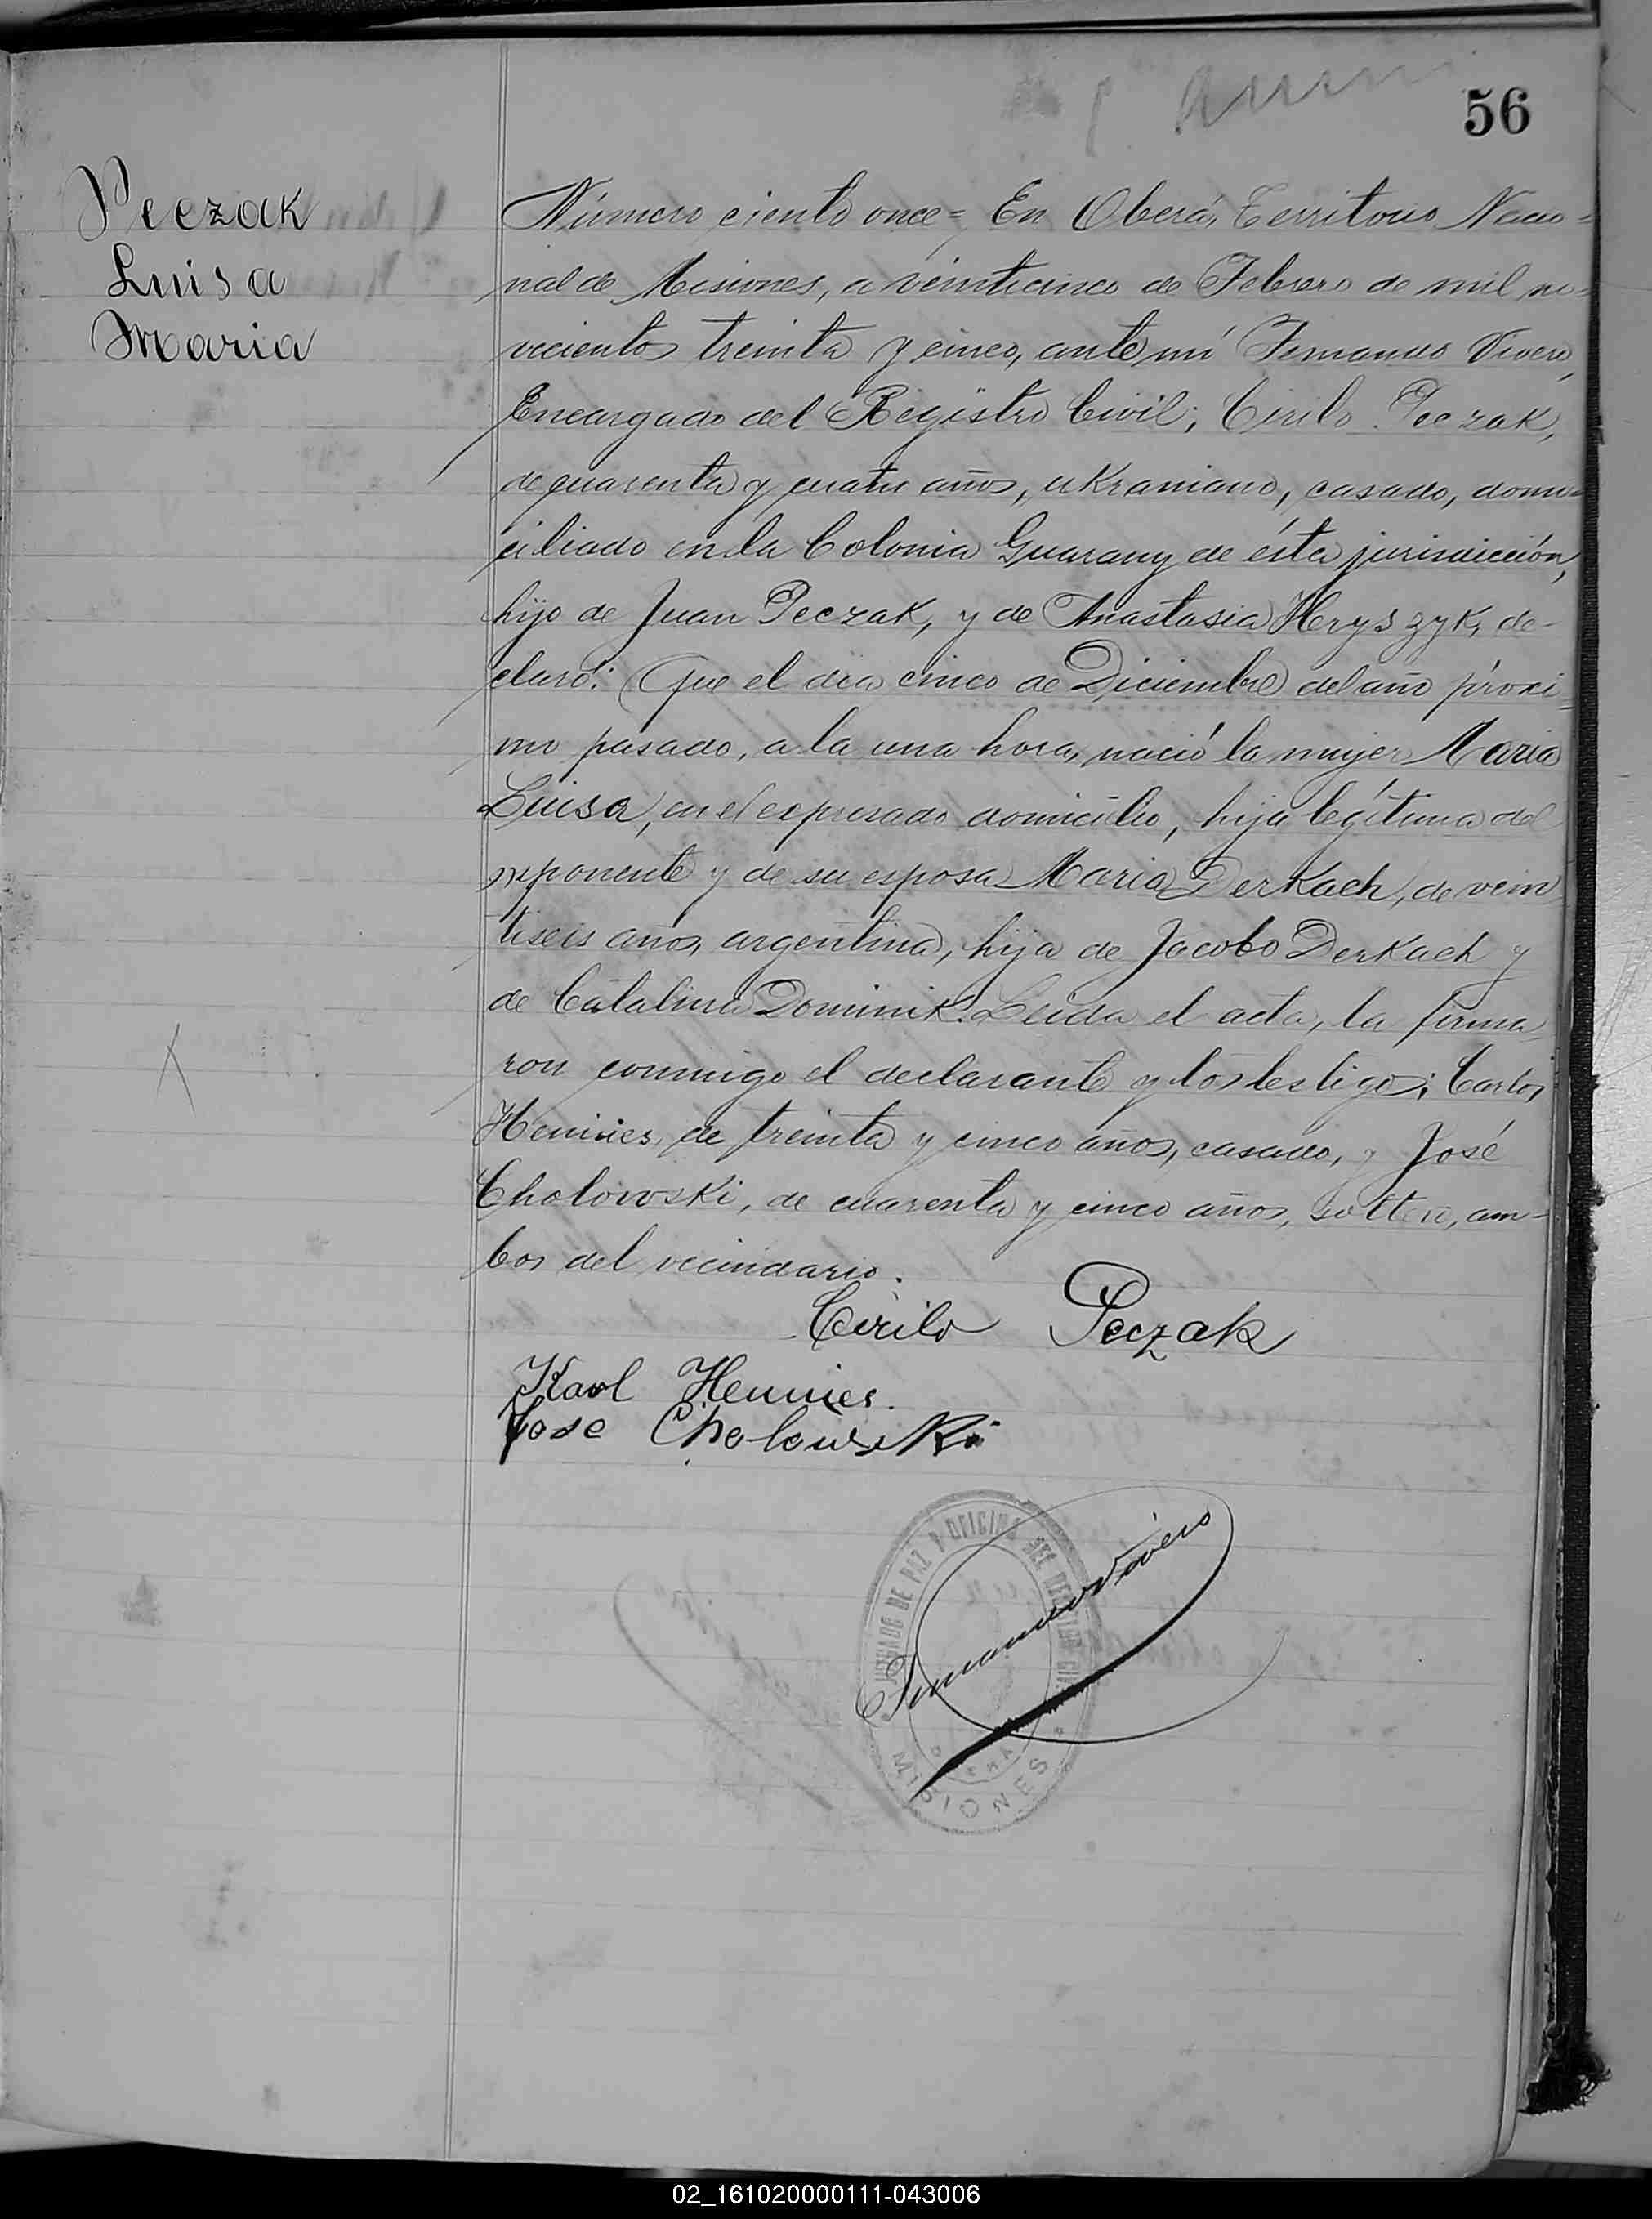 56
Peczak
Luisa
Maria
Número ciento once = En Oberá, Territorio Nacio-
nal de Misiones, a veinticinco de Febrero de mil no-
vecientos treinta y cinco, ante mí Fernando Vivero,
Encargado del Registro Civil; Cirilo Peczak,
de cuarenta y cuatro años, ukraniano, casado, domi-
ciliado en la Colonia Guarany de ésta jurisdicción,
hijo de Juan Peczak, y de Anastasia Heryszyk, de-
claró: Que el dia cinco de Diciembre del año próxi-
mo pasado, a la una hora, nació la mujer Maria
Luisa, en el expresado domicilio, hija legítima del
exponente y de su esposa Maria Derkach, de vein
tiseis años, argentina, hija de Jacobo Derkach y
de Catalina Dominik. Leida el acta, la firma
ron conmigo el declarante y los testigos; Carlos
Hennies, de treinta y cinco años, casado, y José
Cholowski, de cuarenta y cinco años, soltero, am-
bos del vecindario.
Cirilo Peczak
Karl Hennies.
Jose Cholowski
Fernando Vivero
JUZGADO DE PAZ Y OFICINA DEL REGISTRO CIVIL
MISIONES
02_161020000111-043006